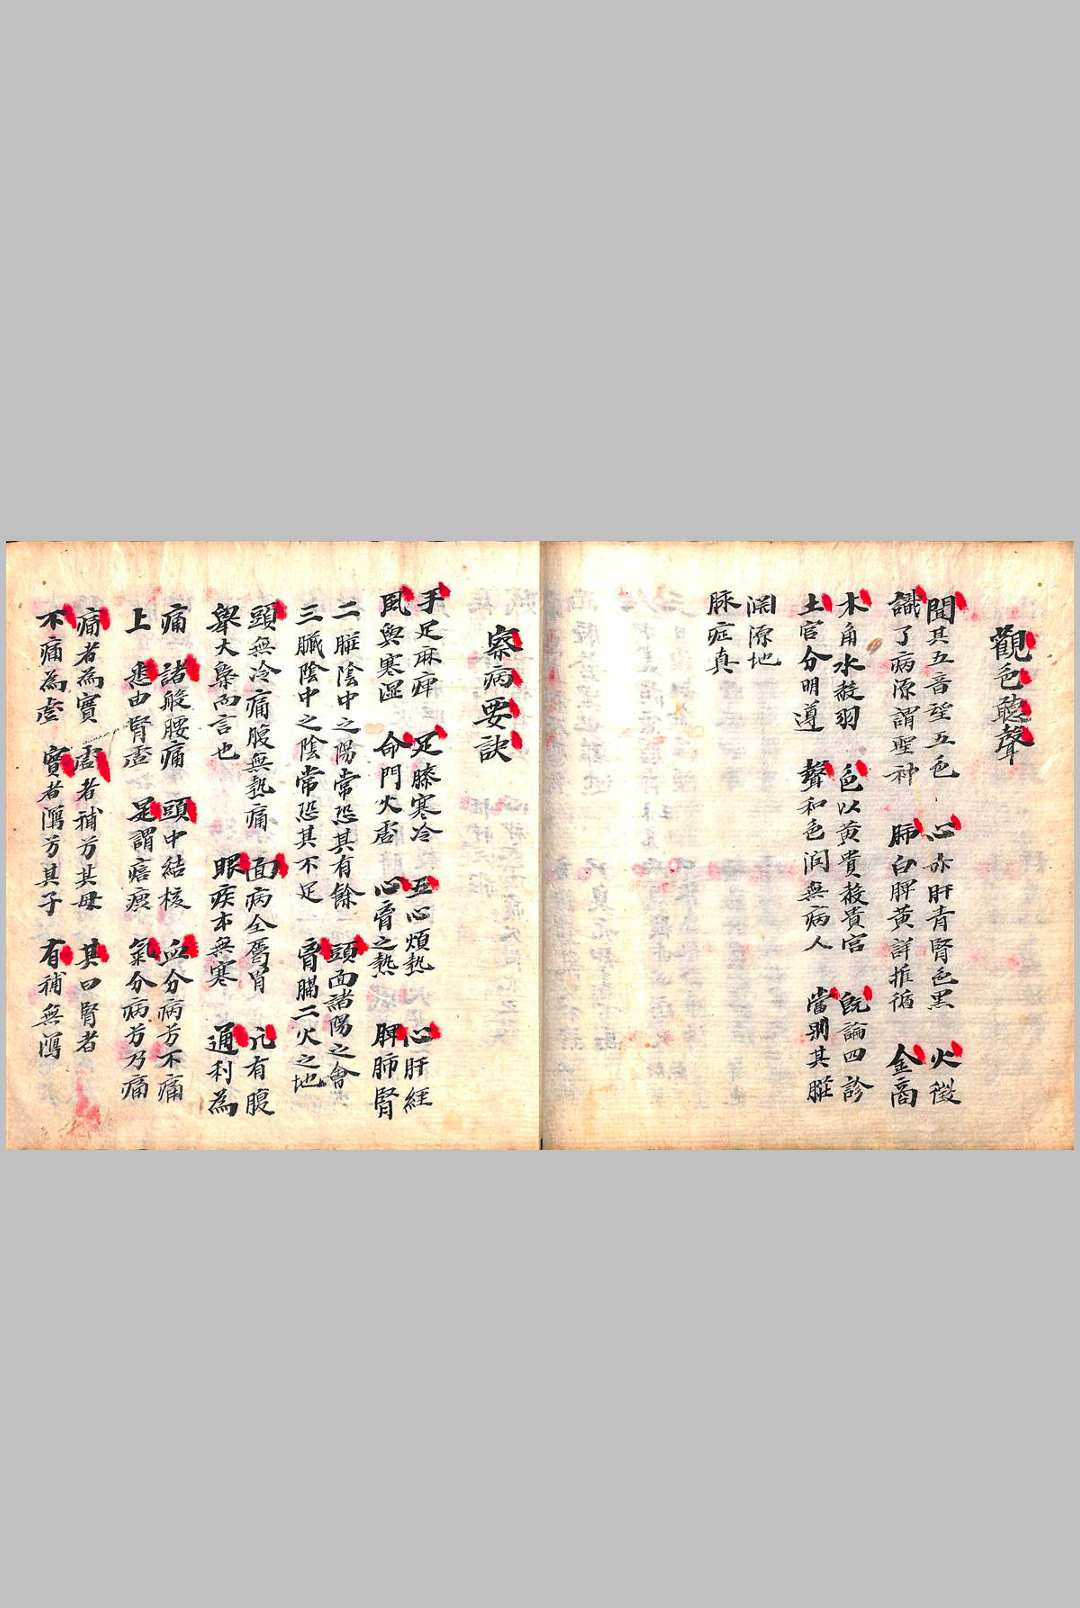 觀色聽聲
聞其五音望五色 心赤肝青腎色黑 火徵
識了病源謂聖神 肺白脾黃詳推循 金商
木角水發羽 色以黃貴發貴宮 既論四診
土宮分明導 聲和色润無病人 當別其脏
渊源地
脉症真
察病要訣
手足麻痺 足膝寒冷 五心煩熱 心肝経
風與寒湿 命門火虛 心胃之熱 脾肺腎
二脏陰中之陽常恐其有餘 頭面諸陽之會
三臟陰中之陰常恐其不足 胃腸二火之地
頭無冷痛腹無熱痛 面病全属胃 凢有腹
舉大槩而言也 眼疾本無寒 通利為
痛 諸般腰痛 頭中結核 血分病方不痛
上 悉由腎虛 足謂痞痰 氣分病方乃痛
痛者為實 虛者補方其母 其曰腎者
不痛為虛 實者瀉方其子 有補無瀉